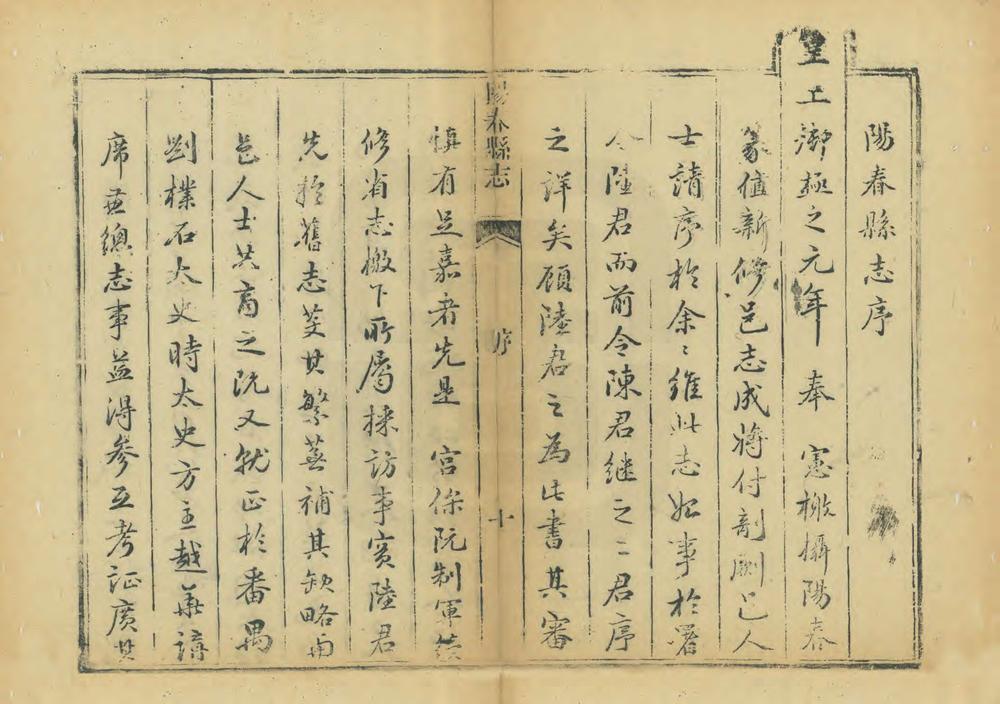 陽春縣志序
皇上御極之元年　奉　憲檄攝陽春
篆値新修邑志成將付剞劂邑人
士請序於余〻維此志始事於署
令陸君而前令陳君繼之二君序
之詳矣顧陸君之為此書其審
陽春縣志　序　十
慎有足嘉者先是　宮保阮制軍續
修省志檄下所屬採訪事實陸君
先於舊志芟其繁蕪補其缺略與
邑人士共商之阮又就正於番禺
劉樸石太史時太史方主越華講
席兼總志事益得參互考証廣其